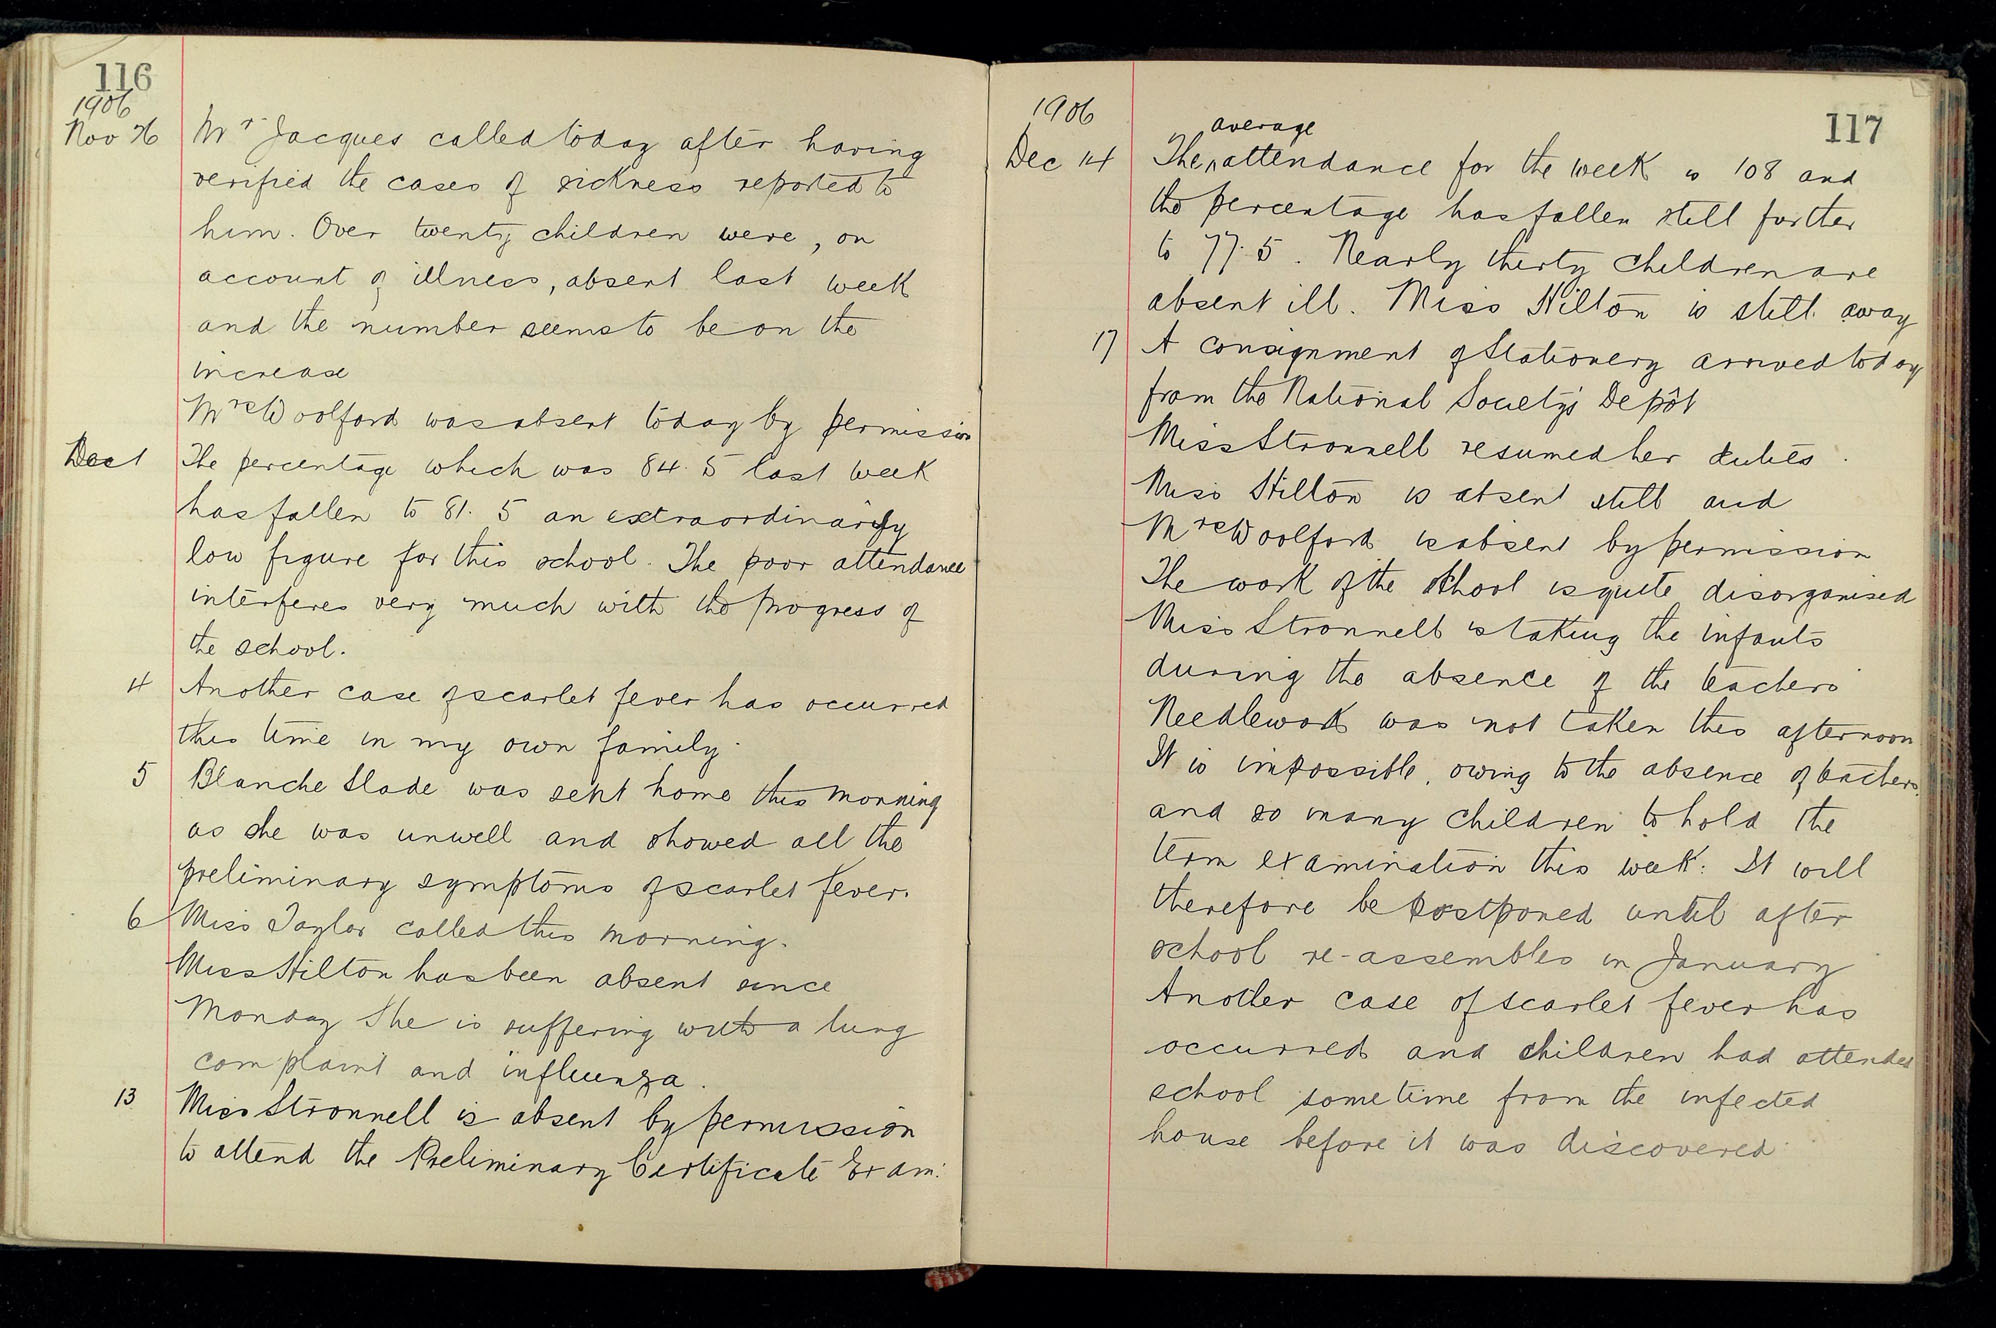 116
1906
Nov 26 Mr Jacques called today after having
verified the cases of sickness reported to
him. Over twenty children were, on
account of illness, absent last week
and the number seems to be on the
increase
Mrs Woolford was absent today by permission
Dec 1 The percentage which was 84.5 last week
has fallen to 81.5 an extraordinarily
low figure for this school. The poor attendance
interferes very much with the progress of
the school.
4 Another case of scarlet fever has occurred
this time in my own family.
5 Blanche Slade was sent home this morning
as she was unwell and showed all the
preliminary symptoms of scarlet fever.
6 Miss Taylor called this morning.
Miss Hilton has been absent since
Monday She is suffering with a lung
complaint and influenza.
13 Miss Stronnell is absent by permission
to attend the Preliminary Certificate Exam:
117
1906
average
Dec 14 The ^ attendance for the week is 108 and
the percentage has fallen still further
to 77.5. Nearly thirty children are
absent ill. Miss Hilton is still away
17 A consignment of Stationery arrived today
from the National Society's Depôt
Miss Stronnell resumed her duties.
Miss Hilton is absent still and
Mrs Woolford is absent by permission
The work of the school is quite disorganised
Miss Stronnell is taking the infants
during the absence of the teachers
Needlework was not taken this afternoon
It is impossible, owing to the absence of teachers
and so many children to hold the
term examination this week: It will
therefore be postponed until after
school re-assembles in January
Another case of scarlet fever has
occurred and children had attended
school sometime from the infected
house before it was discovered.